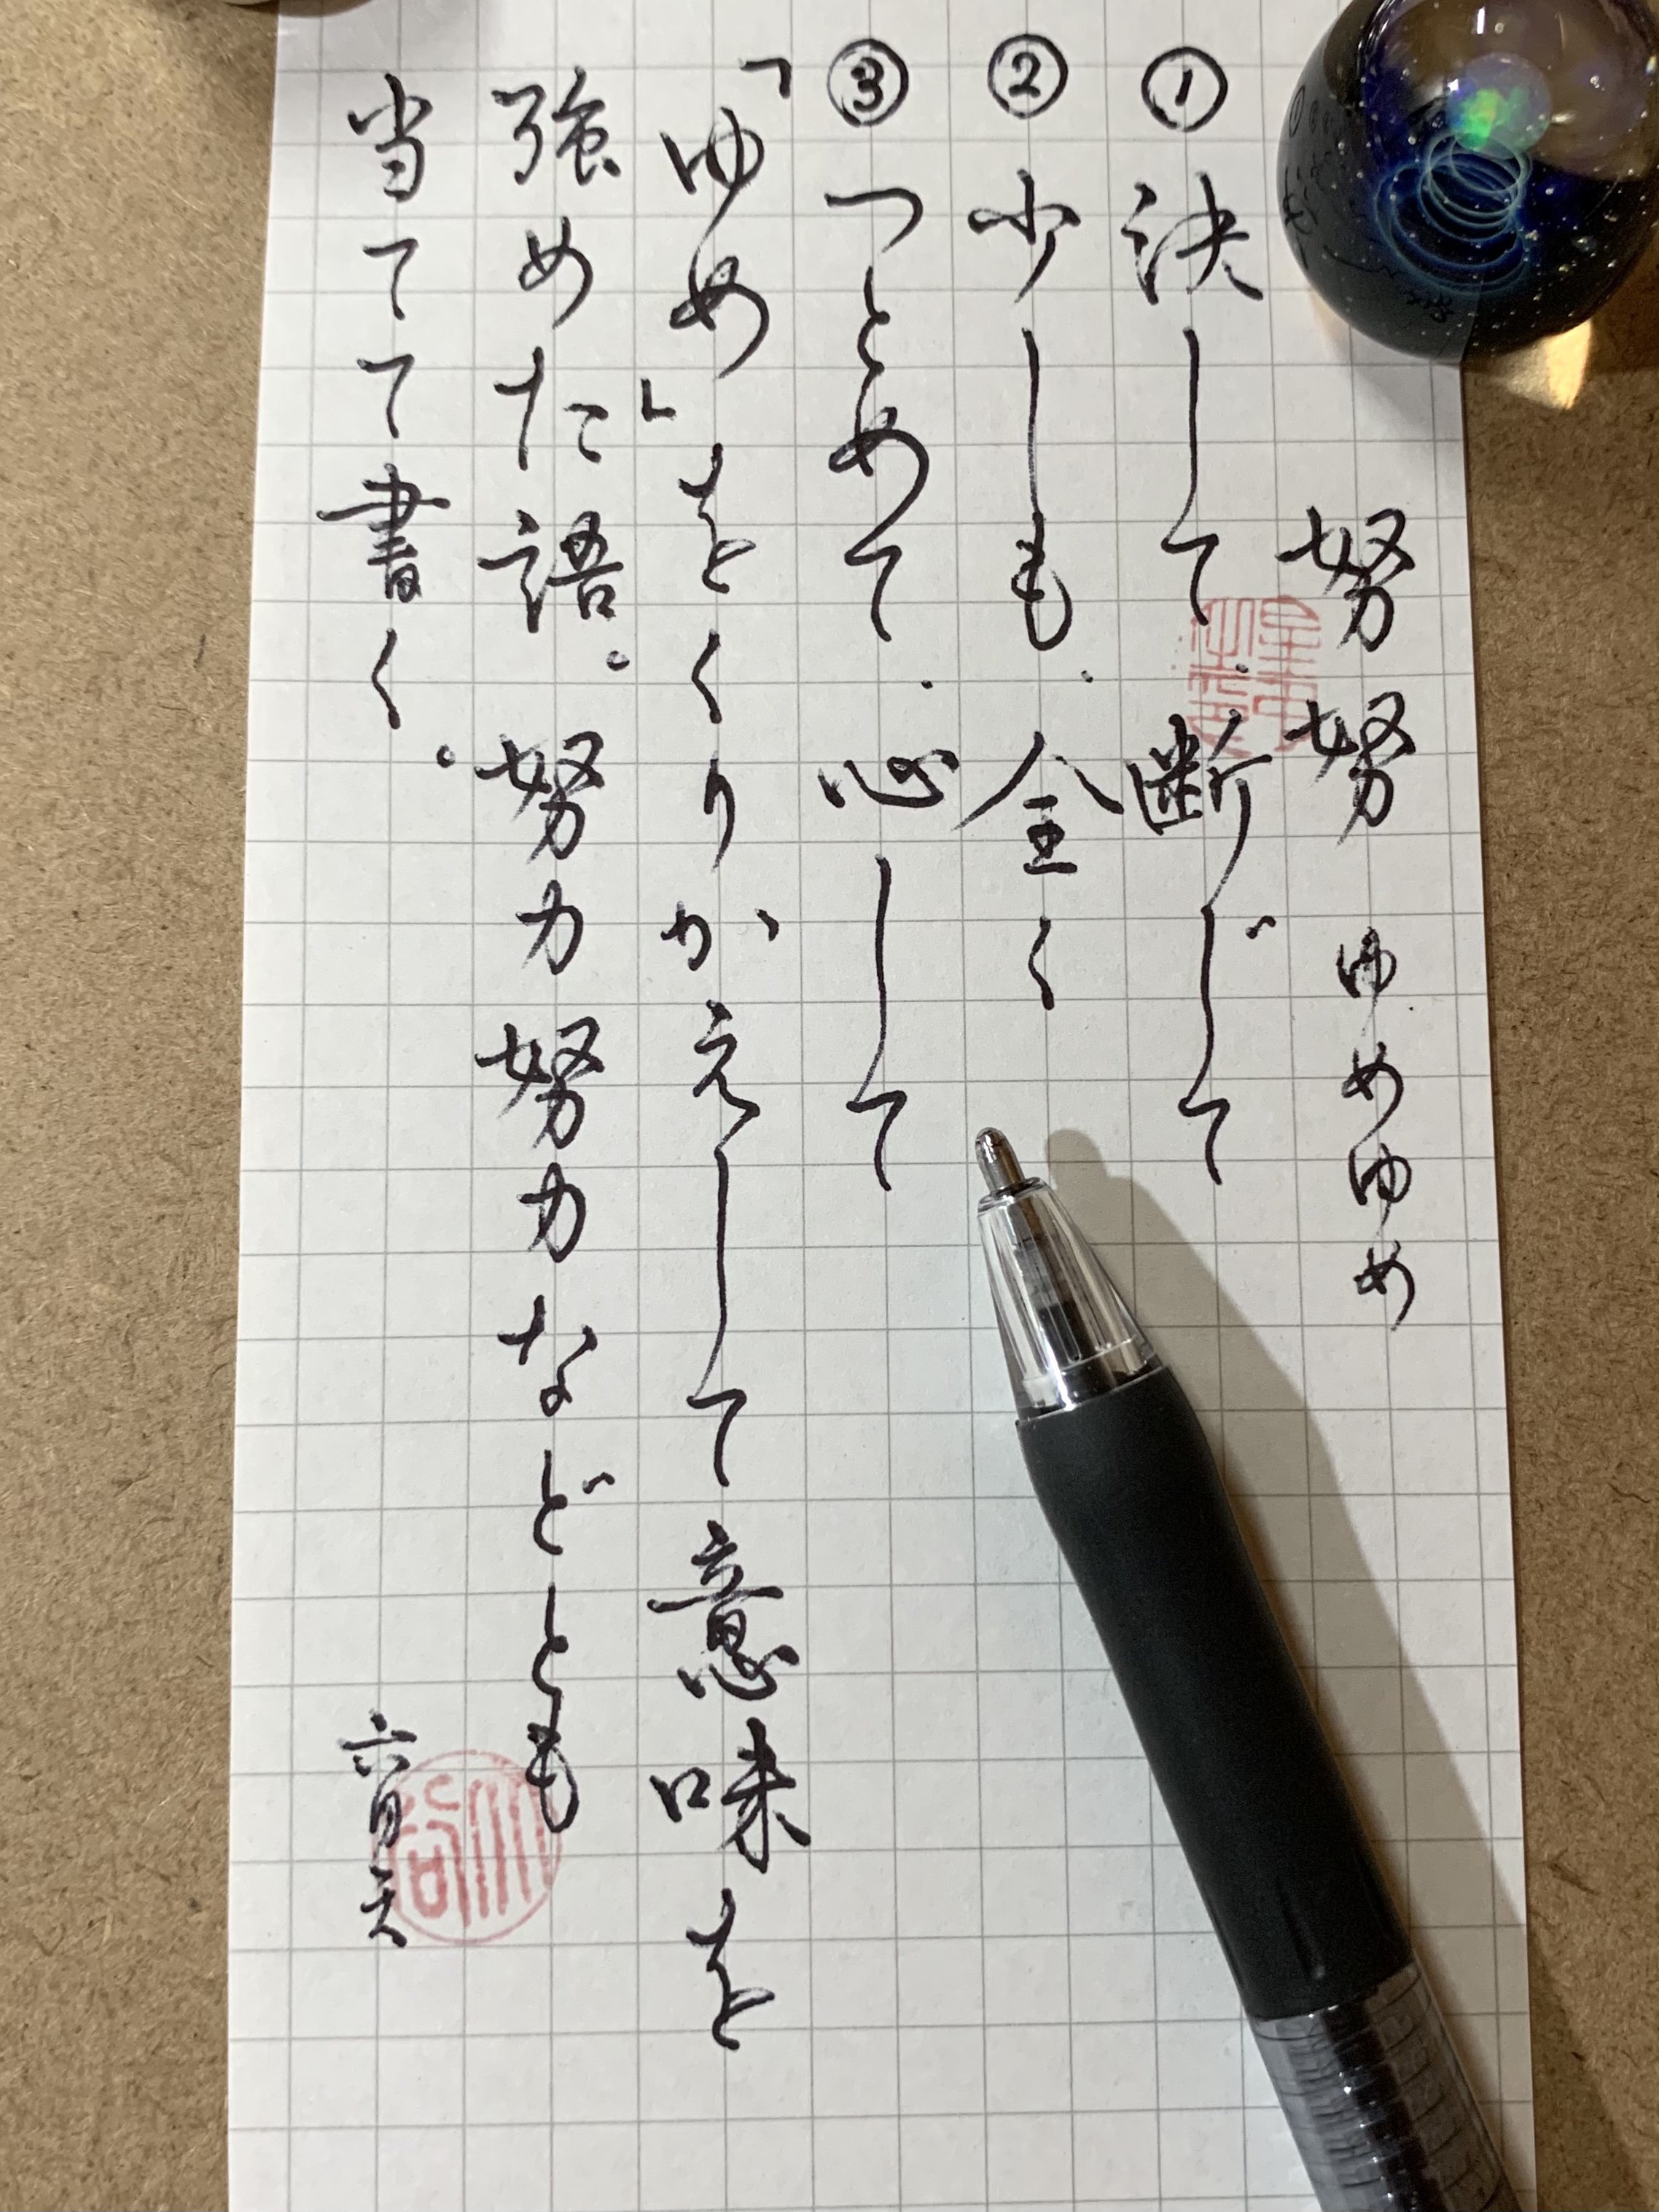 努努 ゆめゆめ
①決して.断じて
②少しも.全く
③つとめて.心して
「ゆめ」をくりかえして意味を
強めた語。努力努力などとも
当てて書く。